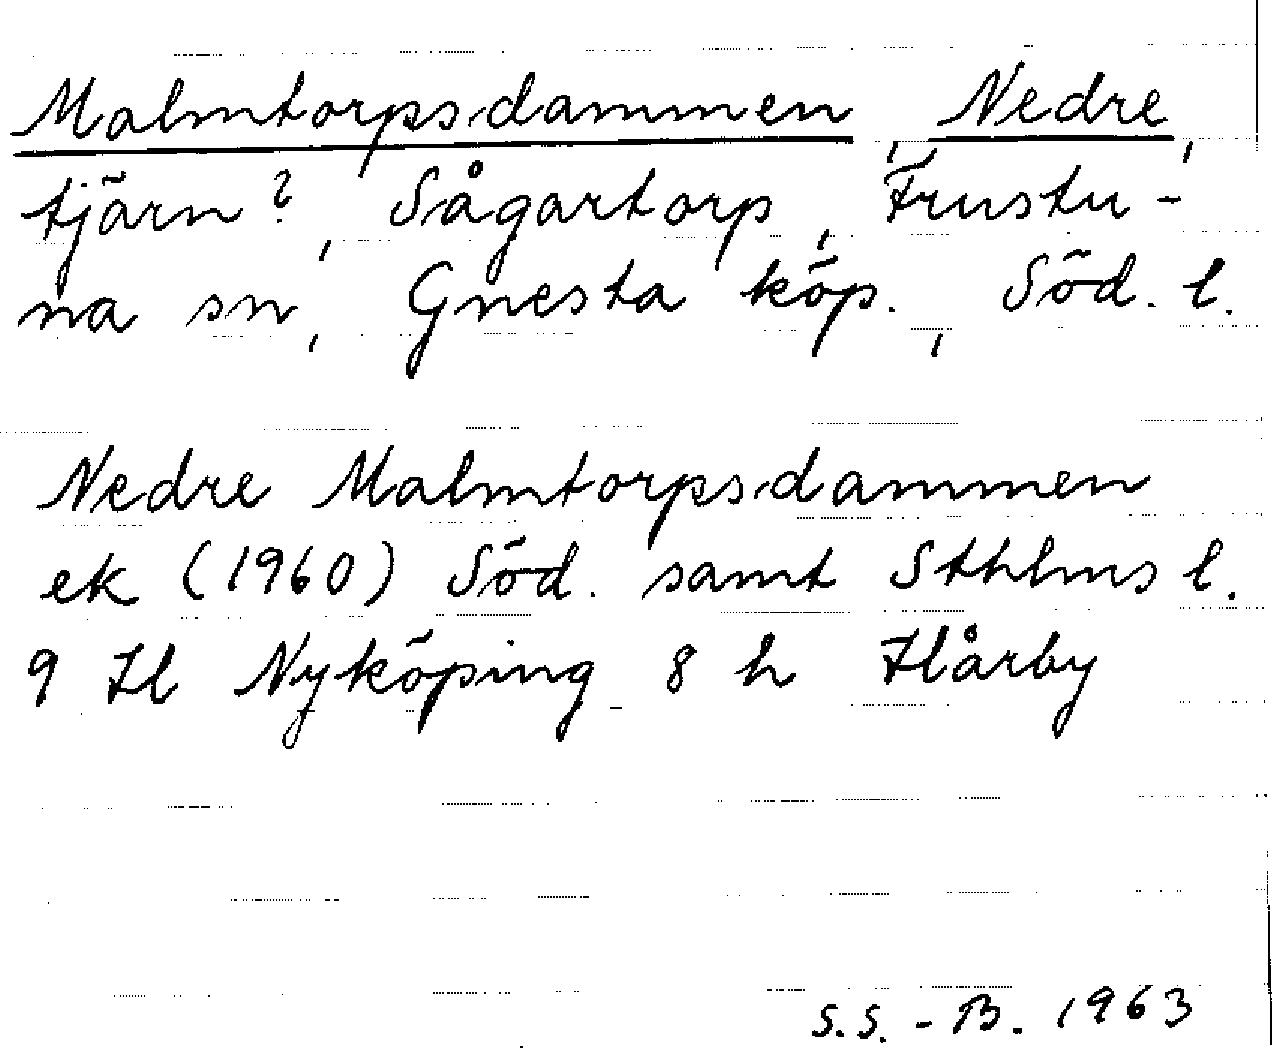 Malmtorpsdammen, Nedre,
tjärn?, Sågartorp, Frustu-
na sn, Gnesta köp., Söd. l.
Nedre Malmtorpsdammen
ek (1960) Söd. samt Sthlms l.
9 Il Nyköping 8 h Flårby
S.S.-B. 1963